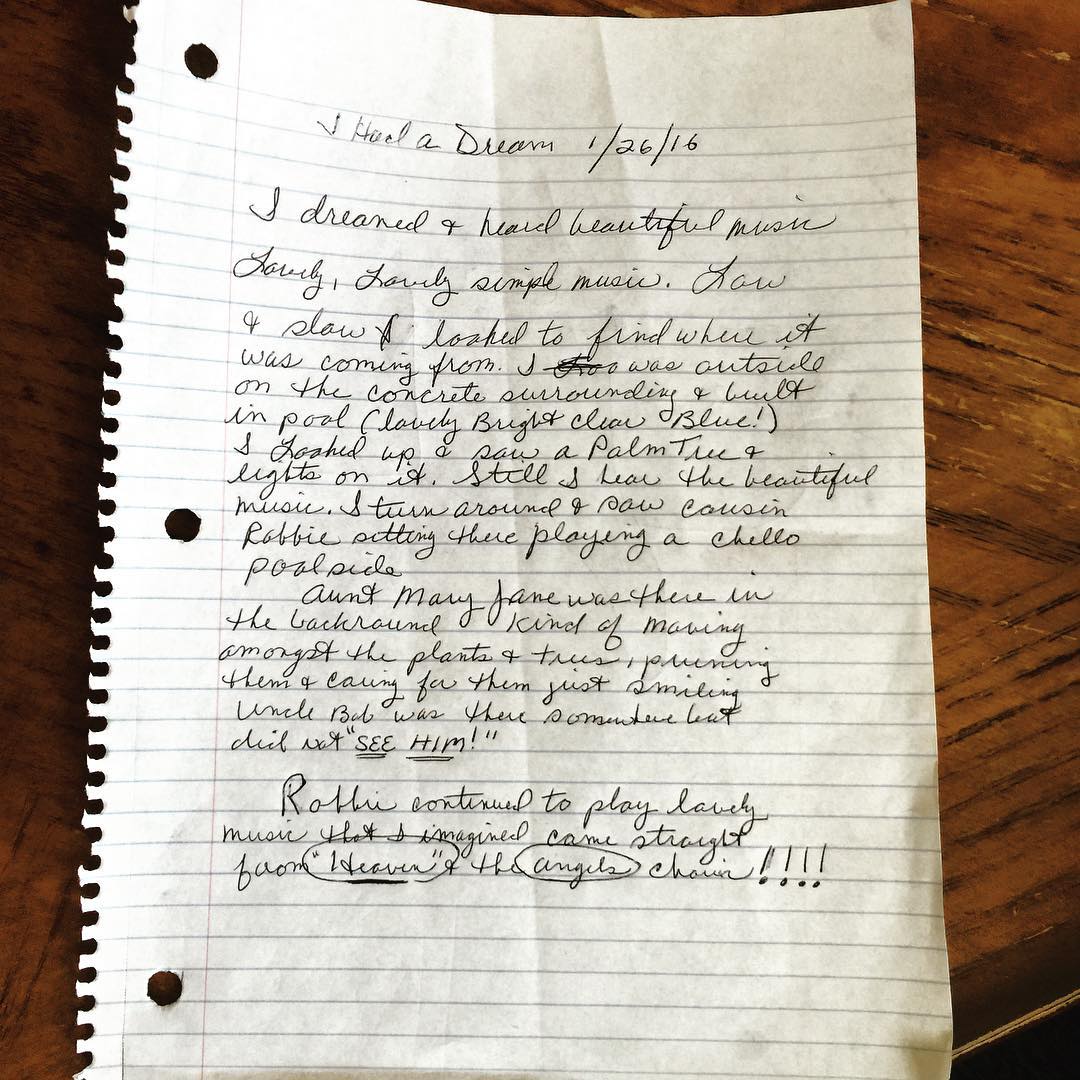 I Had a Dream 1/26/16
I dreamed & heard beautiful music
Lovely, Lovely simple music. Low
& slow I looked to find where it
was coming from. I was outside
on the concrete surrounding & built
in pool (lovely Bright clear Blue!)
I Looked up & saw a Palm Tree &
lights on it. Still I hear the beautiful
music. I turn around & saw cousin
Robbie sitting there playing a chello
poolside
Aunt Mary Jane was there in
the backround kind of moving
amongst the plants & trees, pruning
them & caring for them just smiling
Uncle Bob was there somewhere but
did not "SEE HIM!"
Robbie continued to play lovely
music that I imagined came straight
from "Heaven" & the angels choir!!!!